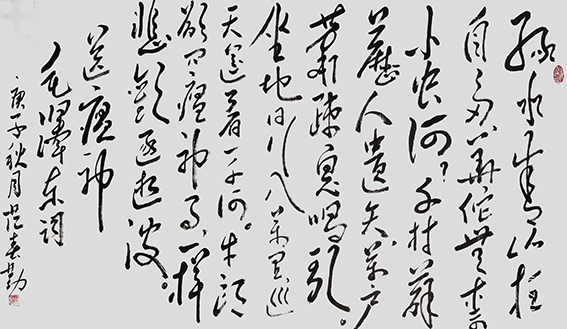 绿水青山枉
自多華佗無奈
小虫何？千村薜
荔人遗矢萬户
萧疏鬼唱歌。
坐地日行八萬里巡
天遥看一千河。牛郎
欲问瘟神事，一样
悲歡逐逝波。
送瘟神
毛澤东词
庚子秋月